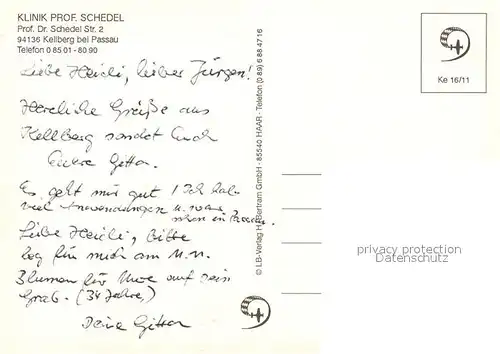 KLINIK PROF. SCHEDEL
Prof. Dr. Schedel Str. 2
94136 Kellberg bei Passau
Telefon 0 85 01 - 80 90
Liebe Heidi, lieber Jürgen!
Herzliche Grüße aus
Kellberg sendet Euch
Eure Gitta.
Es geht mir gut! Ich hab
viel Anwendungen u. war
schon in Passau.
Liebe Heidi, bitte
leg für mich am
Blumen für Uwe auf sein
Grab. (38 Jahre,)
Deine Gitta
© LB-Verlag H. Bertram GmbH - 85540 HAAR - Telefon (0 89) 6 88 47 16
Ke 16/11
privacy protection
Datenschutz